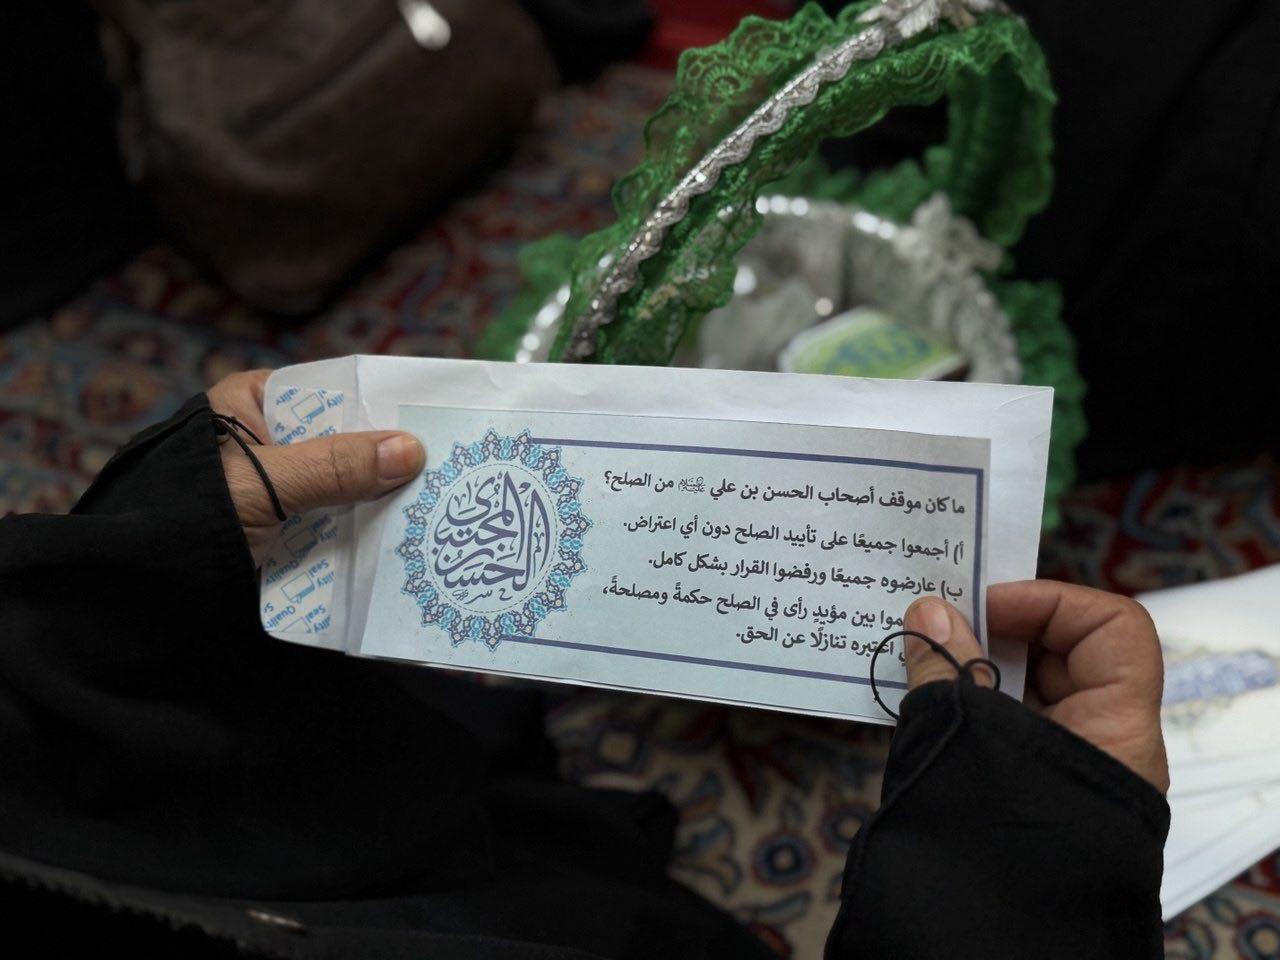 ما كان موقف أصحاب الحسن بن علي عليه السلام من الصلح؟
أ) أجمعوا جميعًا على تأييد الصلح دون أي اعتراض.
ب) عارضوه جميعًا ورفضوا القرار بشكل كامل.
بين مؤيدٍ رأى في الصلح حكمةً ومصلحةً،
اعتبره تنازلًا عن الحق.
الحسن المجتبى
Seal Quality
Seal Quality